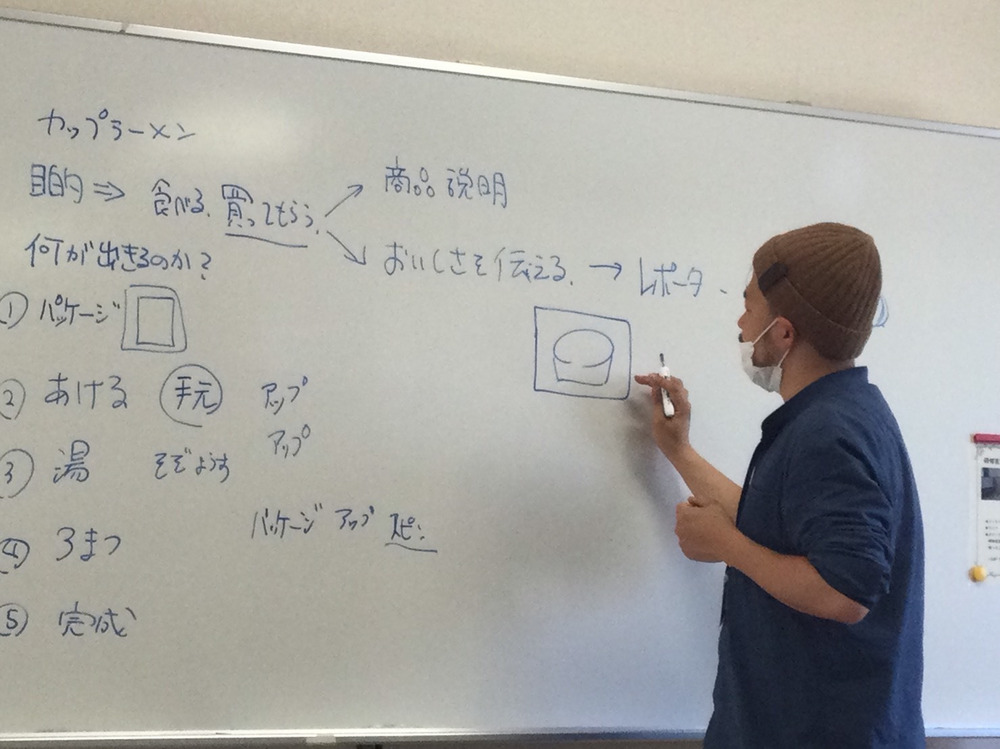 カップラーメン
目的 ⇒ 食べる、買ってもらう。
商品説明
おいしさを伝える。 → レポータ
何が出きるのか?
① パッケージ
② あける 手元 アップ
アップ
③ 湯 そそぐようす
パッケージ アップ
④ 3まつ
⑤ 完成